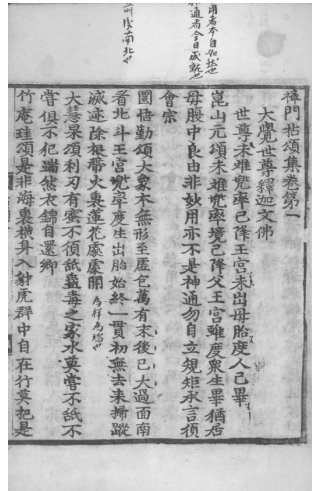 用者本自如然也
神通者今日成就也
禪門拈頌集卷第一
大覺世尊釋迦文佛
世尊未離兜率已降王宮未出母胎度人已畢
崑山元頌未離兜率境已降父王宮雖度衆生畢猶居
母腹中良由非妙用亦不是神通勿自立規矩承言須
會宗
圜悟勤頌大象本無形至虛包萬有末後已大過面南
看北斗王宮兜率度生出胎始終一貫初無去來掃蹤
滅迹除根蔕火裏蓮花處處開為祥為瑞
大慧杲頌利刃有蜜不須舐蠱毒之家水莫嘗不舐不
嘗俱不犯端然衣錦自還鄉
竹庵珪頌是非海裏橫身入豺虎群中自在行莫把是